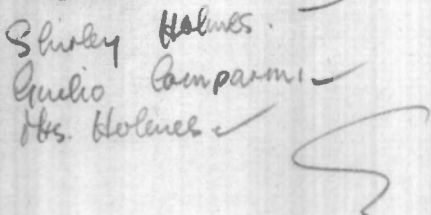 Shirley Holmes.
Giulio Comparini
Mrs. Holmes